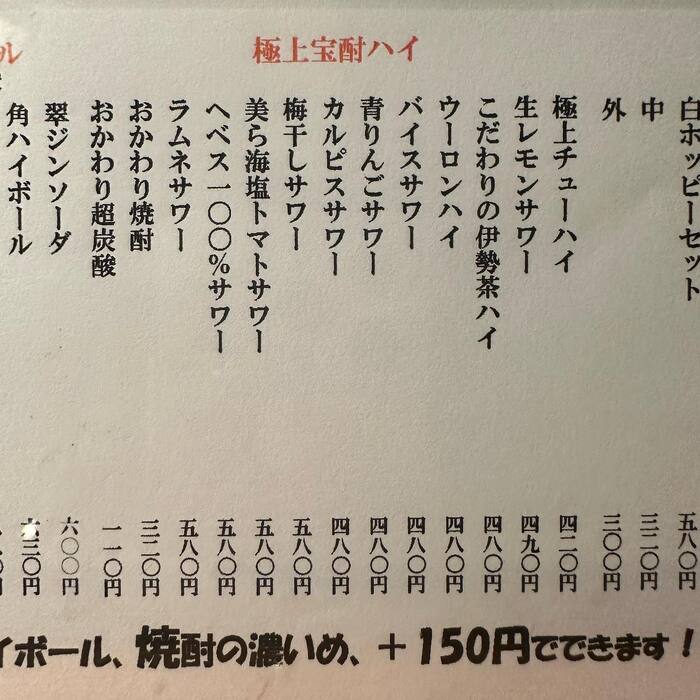 白ホッピーセット 五八〇円
中 三二〇円
外 三〇〇円
極上宝酎ハイ
極上チューハイ 四二〇円
生レモンサワー 四九〇円
こだわりの伊勢茶ハイ 四八〇円
ウーロンハイ 四八〇円
バイスサワー 四八〇円
青りんごサワー 四八〇円
カルピスサワー 四八〇円
梅干しサワー 五八〇円
美ら海塩トマトサワー 五八〇円
ヘベス一〇〇%サワー 五八〇円
ラムネサワー 五八〇円
おかわり焼酎 三二〇円
おかわり超炭酸 一一〇円
翠ジンソーダ 六〇〇円
角ハイボール 六三〇円
イボール、焼酎の濃いめ、+150円でできます!